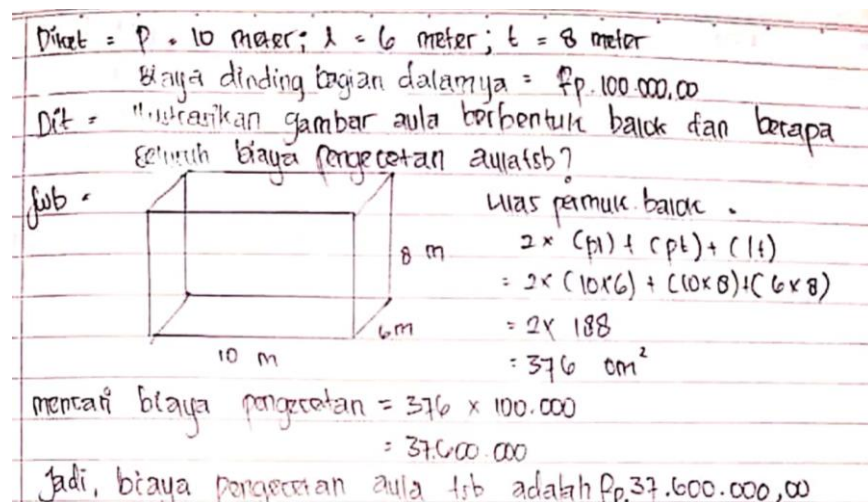 Diket = P = 10 meter; l = 6 meter; t = 8 meter
Biaya dinding bagian dalamya = Rp. 100.000,00
Dit = Ilustrasikan gambar aula berbentuk balok dan berapa
seluruh biaya pengecetan aula tsb?
Jwb =
Luas permuk. balok =
2 × (pl) + (pt) + (lt)
8 m
= 2 × (10×6) + (10×8) + (6×8)
6 m
= 2 × 188
10 m
= 376 cm²
mencari biaya pengecetan = 376 × 100.000
= 37.600.000
Jadi, biaya pengecetan aula tsb adalah Rp. 37.600.000,00